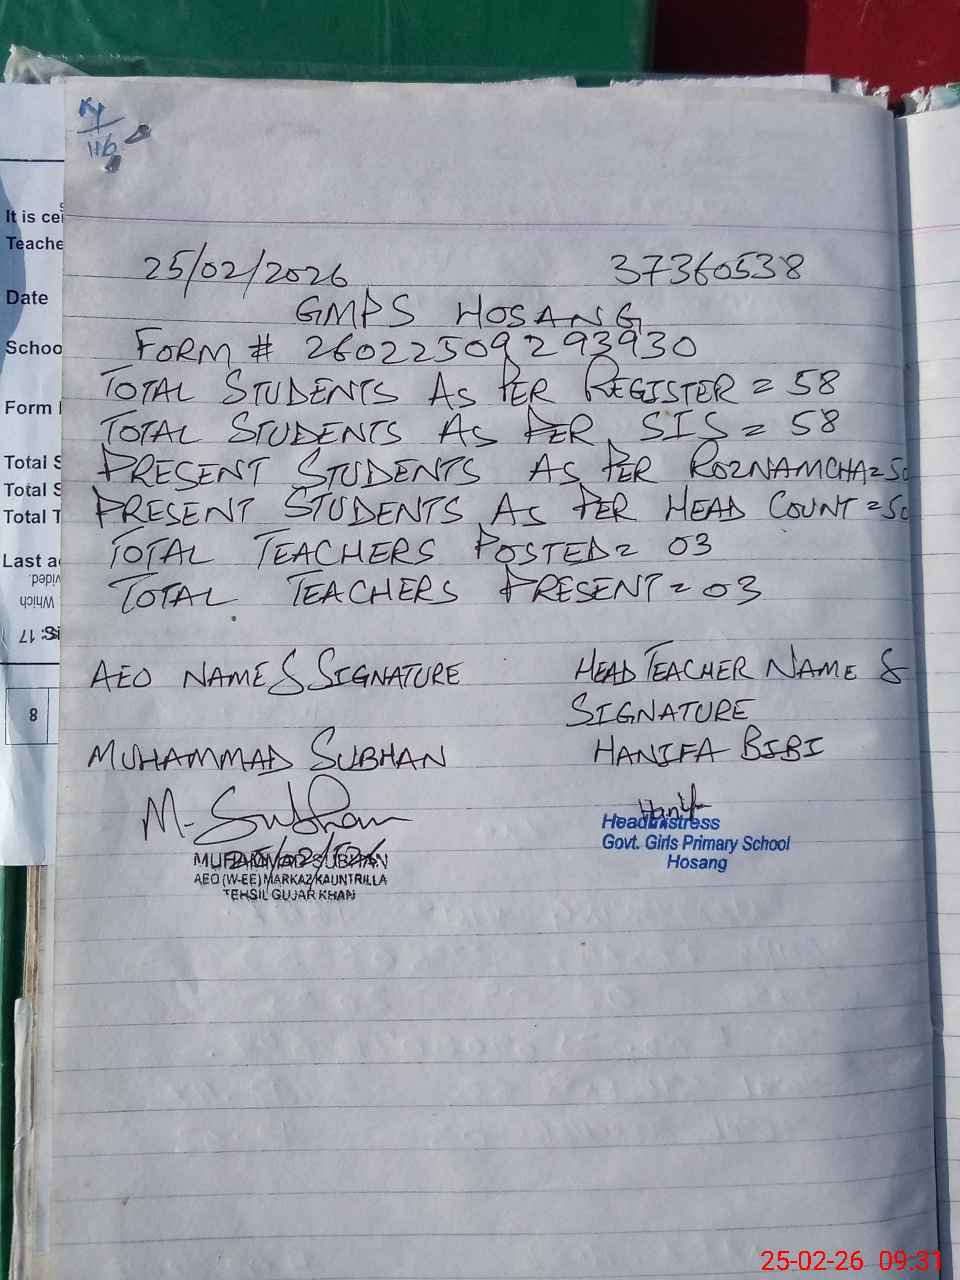 Ky
116
It is cei
Teache
Date
Schoo
Form
Total S
Total S
Total T
Last a
8
25/02/2026 37360538
GMPS HOSANG
FORM # 26022509293930
TOTAL STUDENTS AS PER REGISTER = 58
TOTAL STUDENTS AS PER SIS = 58
PRESENT STUDENTS AS PER ROZNAMCHA = 50
PRESENT STUDENTS AS PER HEAD COUNT = 50
TOTAL TEACHERS POSTED = 03
TOTAL TEACHERS PRESENT = 03
AEO NAME & SIGNATURE
HEAD TEACHER NAME & SIGNATURE
MUHAMMAD SUBHAN
HANIFA BIBI
M. Subhan
25/02/26
MUHAMMAD SUBHAN
AEO (W-EE) MARKAZ KAUNTRILLA
TEHSIL GUJAR KHAN
Hanifa
Headmistress
Govt. Girls Primary School
Hosang
25-02-26 09:31